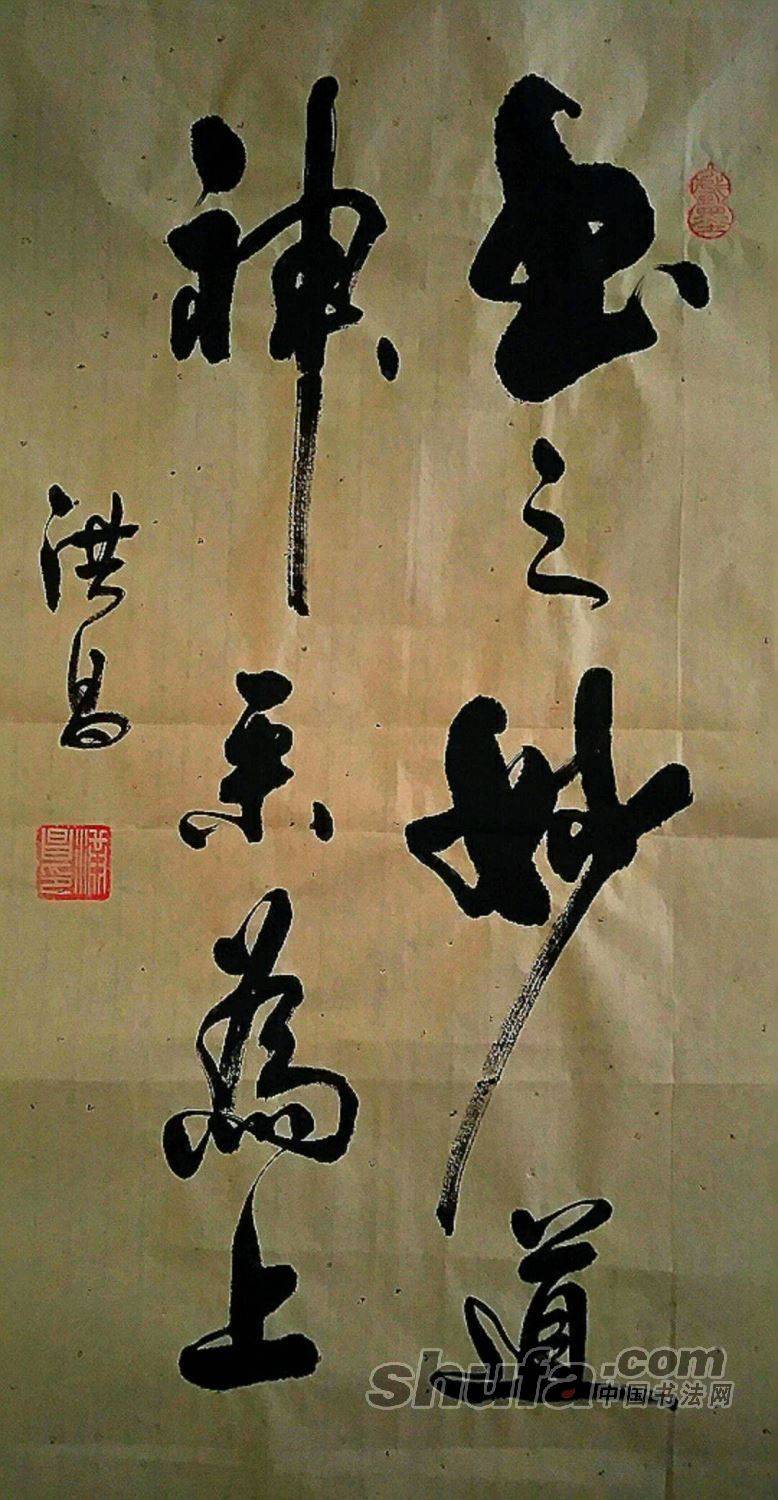 书之妙道
神采为上
洪昌
shufa.com
中国书法网